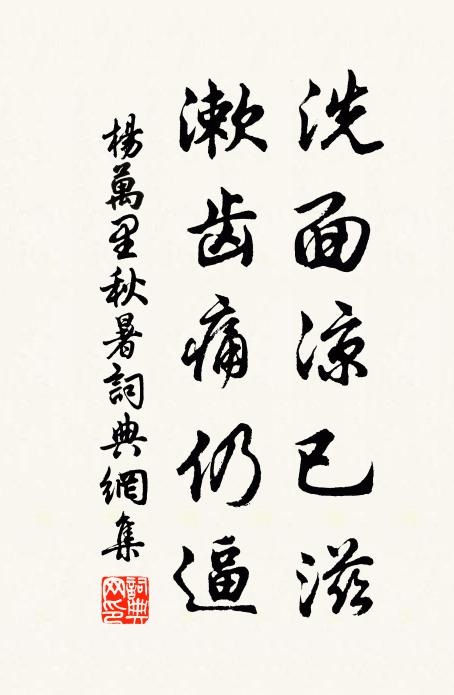 洗面凉已滋
漱齿痛仍逼
楊萬里秋暑詞典網集
詞典
网印